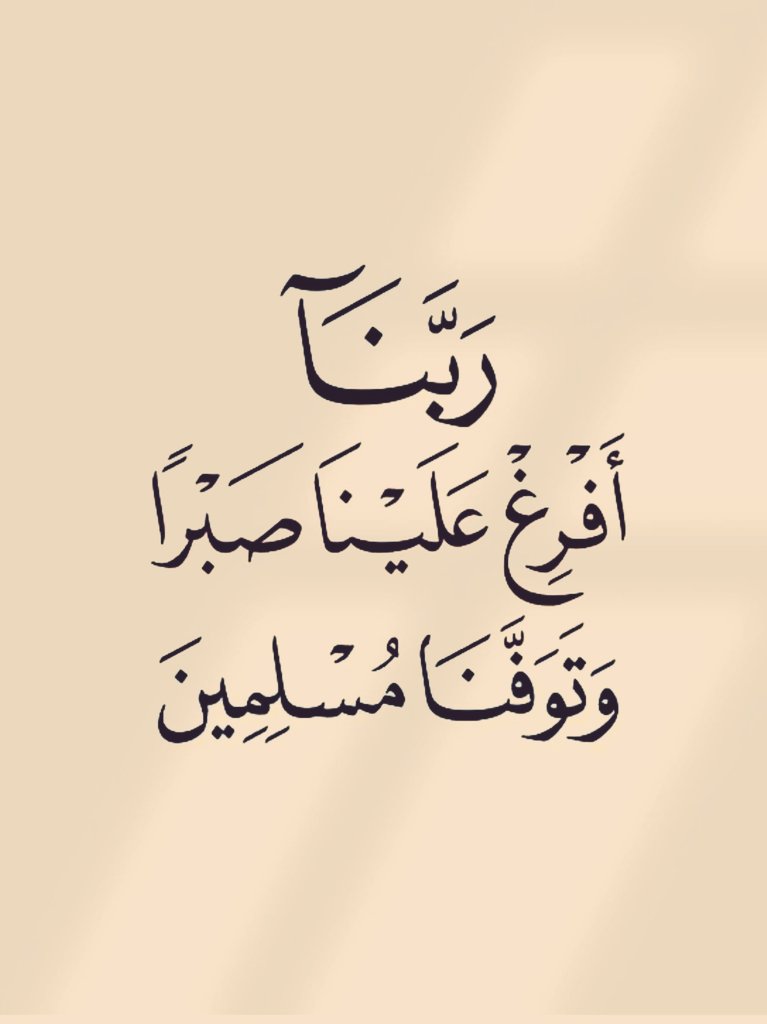 رَبَّنَآ
أَفْرِغْ عَلَيْنَا صَبْرًا
وَتَوَفَّنَا مُسْلِمِينَ